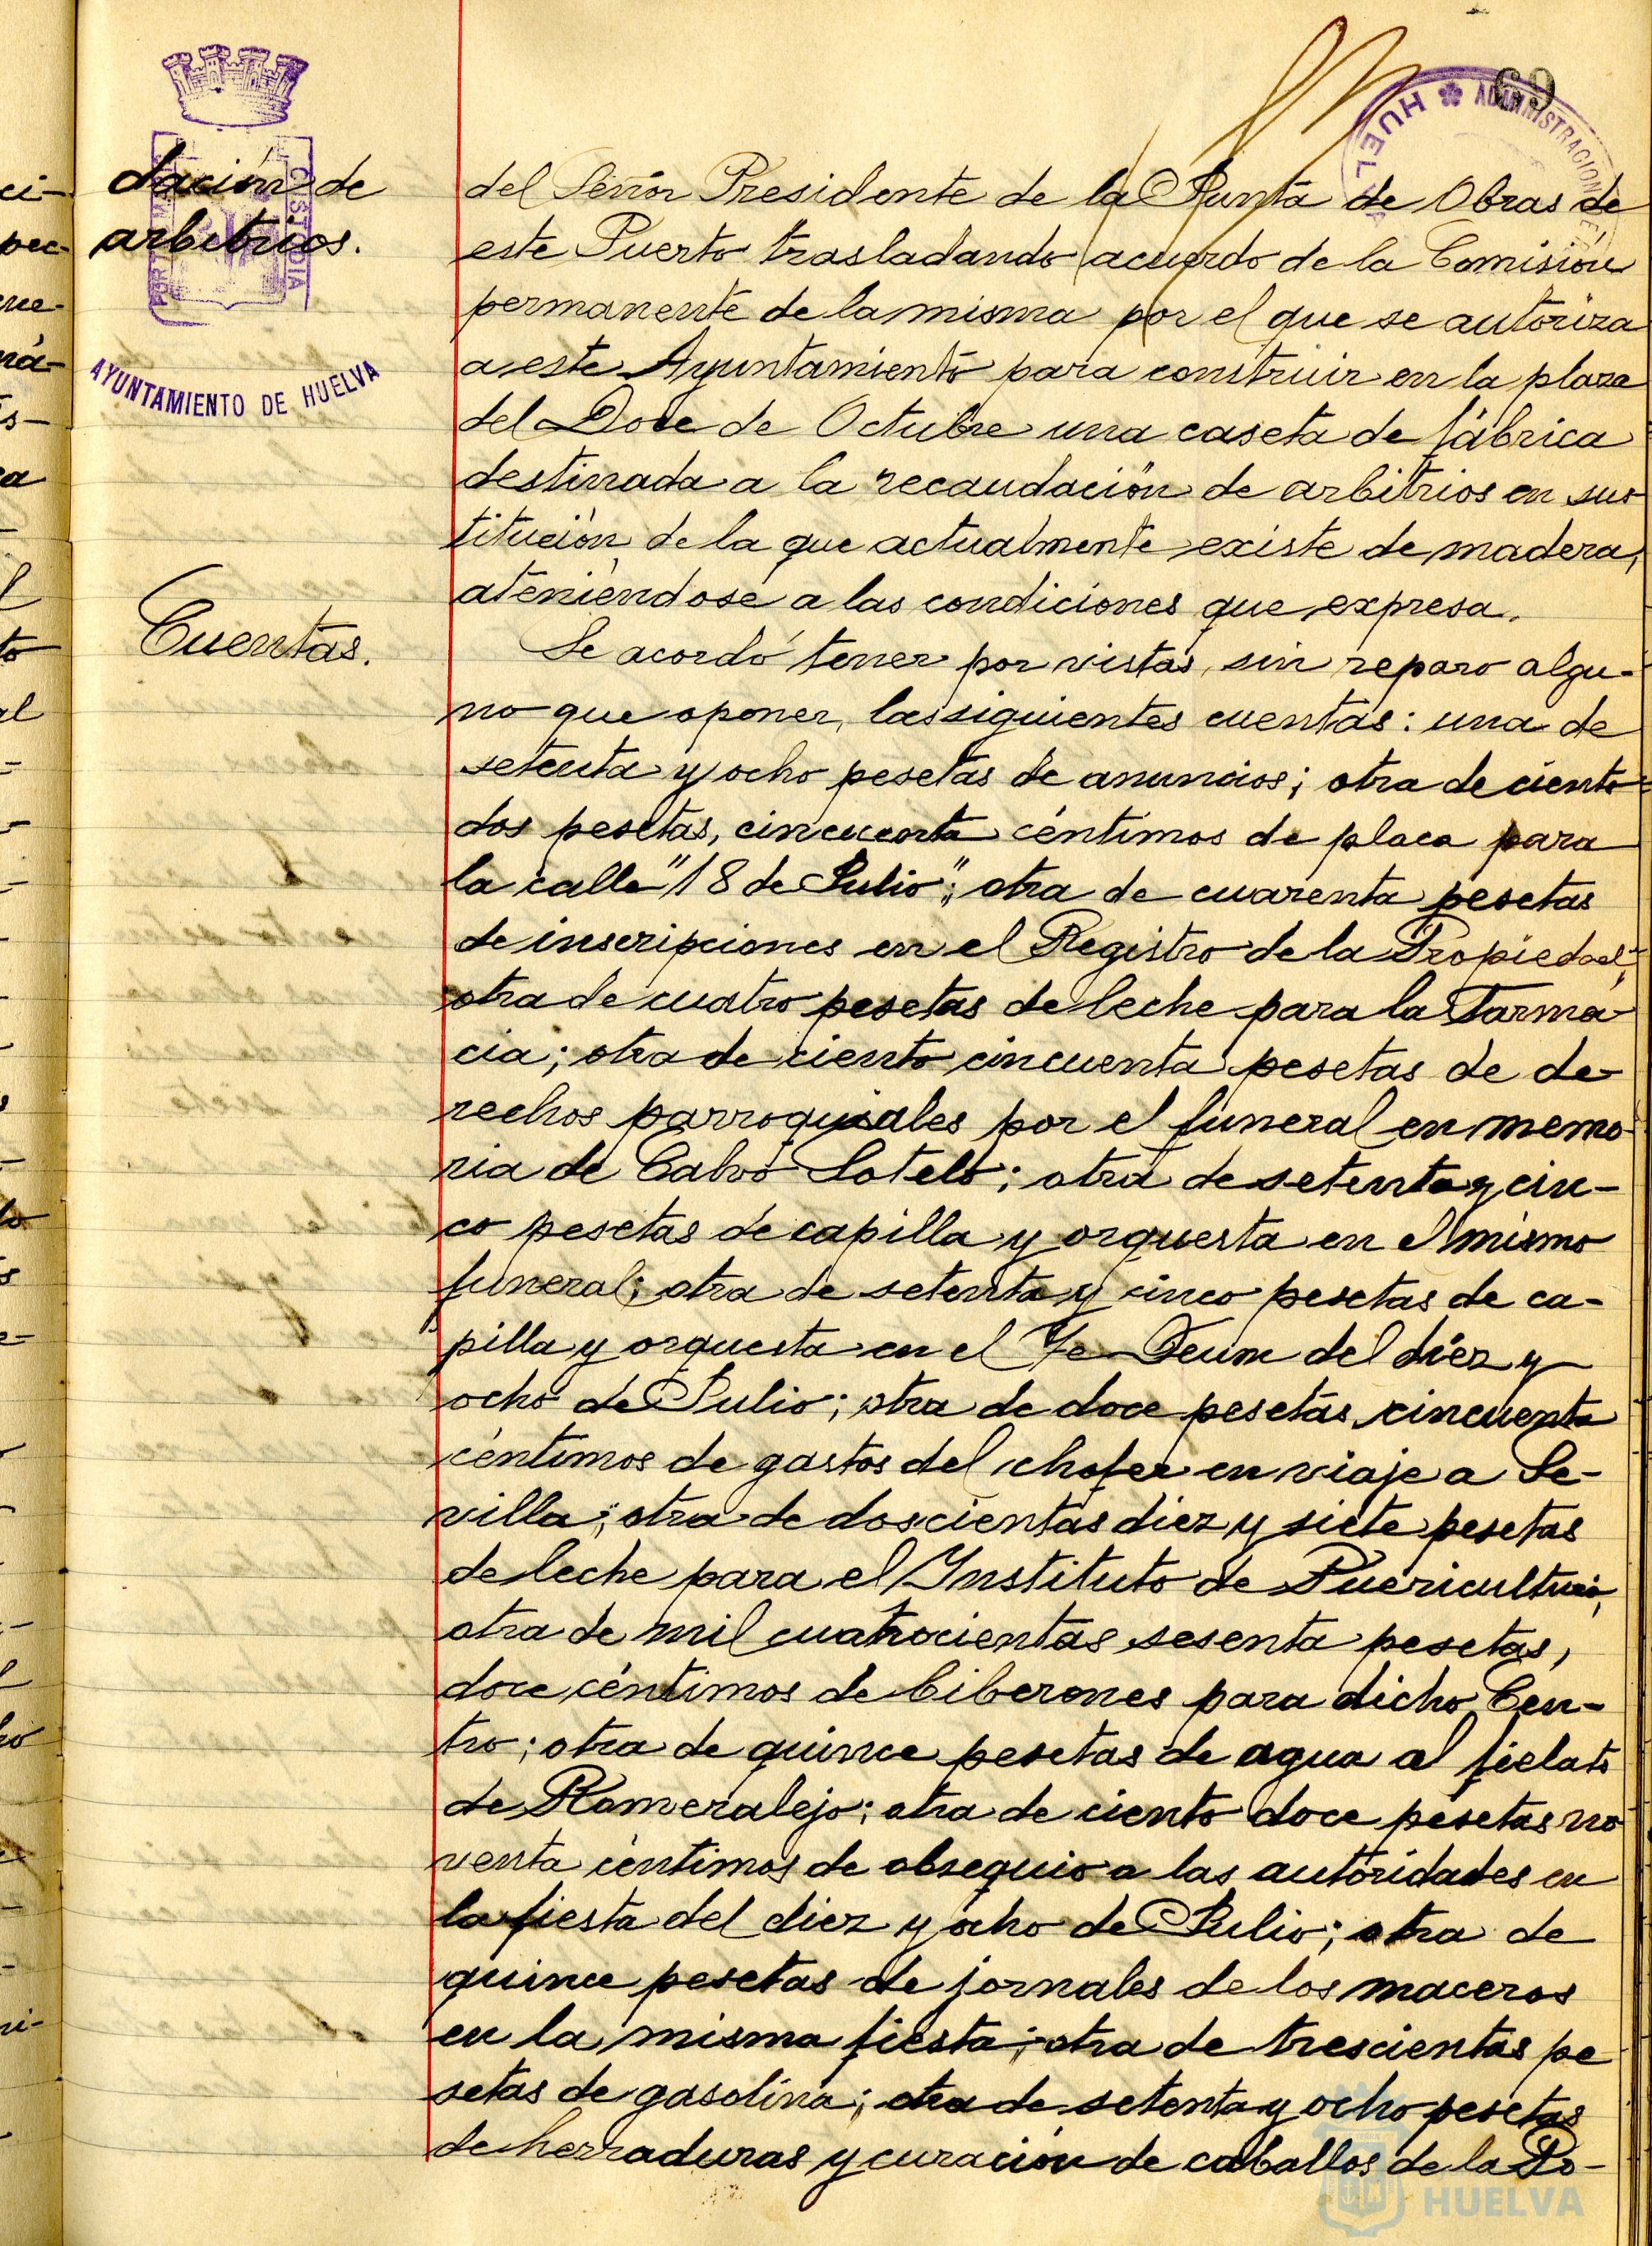 69
HUELVA * ADMINISTRACION
PORTUS MA
CUSTODIA
AYUNTAMIENTO DE HUELVA
dación de
arbitrios.
del Señor Presidente de la Junta de Obras de
este Puerto trasladando acuerdo de la Comisión
permanente de la misma por el que se autoriza
a este Ayuntamiento para construir en la plaza
del Doce de Octubre una caseta de fábrica
destinada a la recaudación de arbitrios en sus
titución de la que actualmente existe de madera,
ateniéndose a las condiciones que expresa.
Cuentas.
Se acordó tener por vistas, sin reparo algu-
no que oponer, las siguientes cuentas: una de
setenta y ocho pesetas de anuncios; otra de ciento
dos pesetas, cincuenta céntimos de placa para
la calle "18 de Julio"; otra de cuarenta pesetas
de inscripciones en el Registro de la Propiedad;
otra de cuatro pesetas de leche para la Farma-
cia; otra de ciento cincuenta pesetas de de-
rechos parroquiales por el funeral en memo-
ria de Calvo Sotelo; otra de setenta y cin-
co pesetas de capilla y orquesta en el mismo
funeral; otra de setenta y cinco pesetas de ca-
pilla y orquesta en el Te-Deum del diez y
ocho de Julio; otra de doce pesetas, cincuenta
céntimos de gastos del chofer en viaje a Se-
villa; otra de doscientas diez y siete pesetas
de leche para el Instituto de Puericultura,
otra de mil cuatrocientas sesenta pesetas,
doce céntimos de biberones para dicho Cen-
tro; otra de quince pesetas de agua al fielato
de Romeralejo; otra de ciento doce pesetas no
venta céntimos de obsequio a las autoridades en
la fiesta del diez y ocho de Julio; otra de
quince pesetas de jornales de los maceros
en la misma fiesta; otra de trescientas pe
setas de gasolina; otra de setenta y ocho pesetas
de herraduras y curación de caballos de la Po-
HUELVA